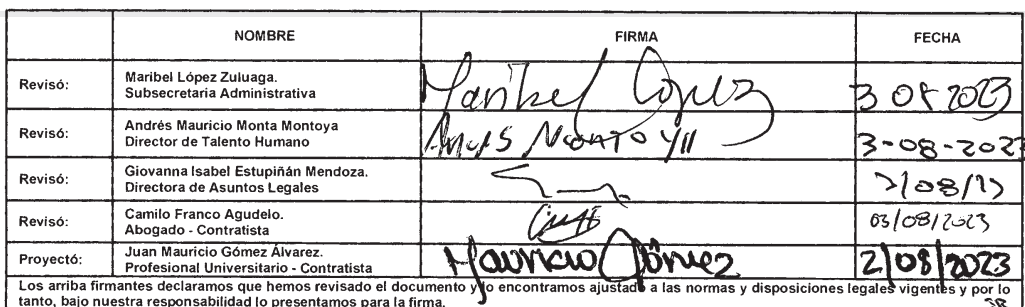 NOMBRE FIRMA FECHA
Revisó: Maribel López Zuluaga.
Subsecretaria Administrativa
Maribel López 3 08 2023
Revisó: Andrés Mauricio Monta Montoya
Director de Talento Humano
3-08-2023
Revisó: Giovanna Isabel Estupiñán Mendoza.
Directora de Asuntos Legales
Revisó: Camilo Franco Agudelo.
Abogado - Contratista
03/08/2023
Proyectó: Juan Mauricio Gómez Álvarez.
Profesional Universitario - Contratista
Mauricio Gómez 2/08/2023
Los arriba firmantes declaramos que hemos revisado el documento y lo encontramos ajustado a las normas y disposiciones legales vigentes y por lo
tanto, bajo nuestra responsabilidad lo presentamos para la firma.